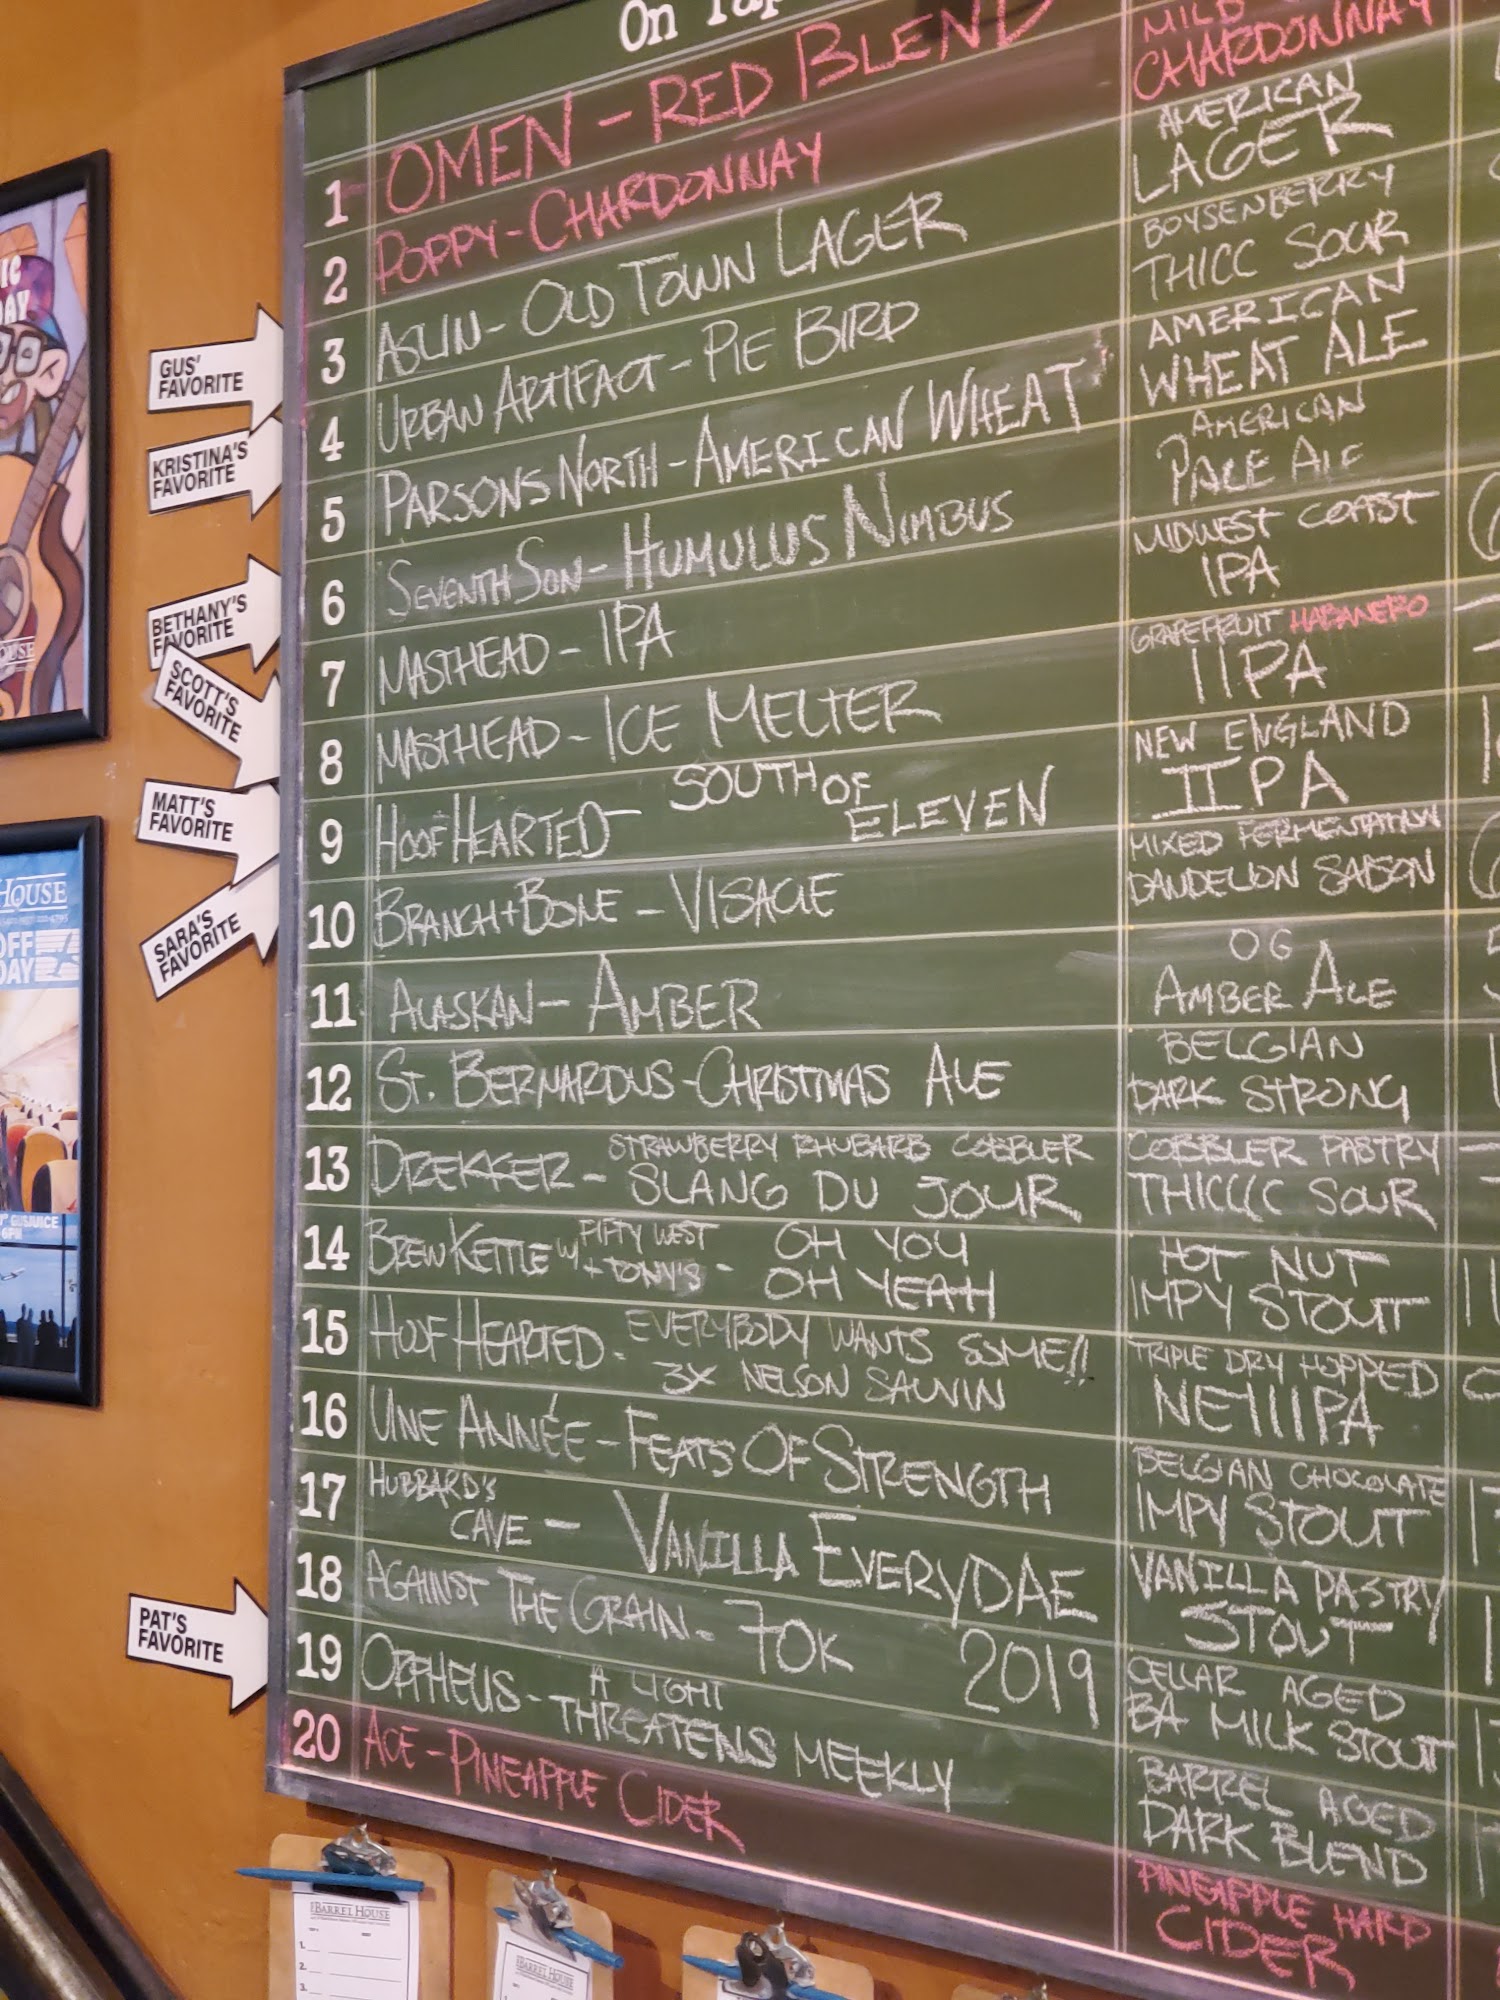 On Tap
1 OMEN - RED BLEND
MILD
CHARDONNAY
2 POPPY - CHARDONNAY
AMERICAN
LAGER
3 ASLIN - OLD TOWN LAGER
BOYSENBERRY
THICC SOUR
4 URBAN ARTIFACT - PIE BIRD
AMERICAN
WHEAT ALE
5 PARSONS NORTH - AMERICAN WHEAT
AMERICAN
PALE ALE
6 SEVENTH SON - HUMULUS NIMBUS
MIDWEST COAST
IPA
7 MASTHEAD - IPA
GRAPEFRUIT HABANERO
IIPA
8 MASTHEAD - ICE MELTER
NEW ENGLAND
IIPA
9 HOOF HEARTED - SOUTH OF
ELEVEN
MIXED FERMENTATION
DANDELION SAISON
10 BRANCH + BONE - VISAGE
OG
AMBER ALE
11 ALASKAN - AMBER
BELGIAN
DARK STRONG
12 ST. BERNARDUS - CHRISTMAS ALE
COBBLER PASTRY
THICCC SOUR
13 DREKKER - STRAWBERRY RHUBARB COBBLER
SLANG DU JOUR
HOT NUT
IMPY STOUT
14 BREW KETTLE W/ FIFTY WEST
+ TONY'S - OH YOU
OH YEAH
TRIPLE DRY HOPPED
NEIIIPA
15 HOOF HEARTED - EVERYBODY WANTS SOME!!
3X NELSON SAUVIN
BELGIAN CHOCOLATE
IMPY STOUT
16 UNE ANNÉE - FEATS OF STRENGTH
VANILLA PASTRY
STOUT
17 HUBBARD'S
CAVE - VANILLA EVERYDAE
CELLAR AGED
BA MILK STOUT
18 AGAINST THE GRAIN - 70K 2019
BARREL AGED
DARK BLEND
19 ORPHEUS - A LIGHT
THREATENS MEEKLY
PINEAPPLE HARD
CIDER
20 ACE - PINEAPPLE CIDER
GUS'
FAVORITE
KRISTINA'S
FAVORITE
BETHANY'S
FAVORITE
SCOTT'S
FAVORITE
MATT'S
FAVORITE
SARA'S
FAVORITE
PAT'S
FAVORITE
HOUSE
OFF
DAY
GUSJUICE
6PM
BARREL HOUSE
1.
2.
3.
BARREL HOUSE